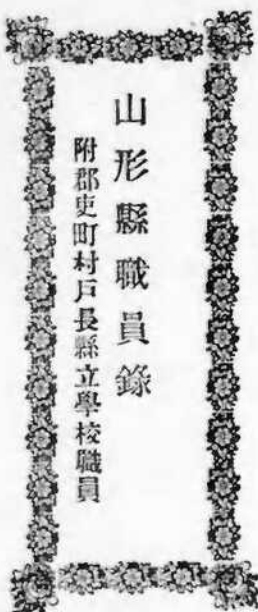 山形縣職員錄
附郡吏町村戸長縣立學校職員